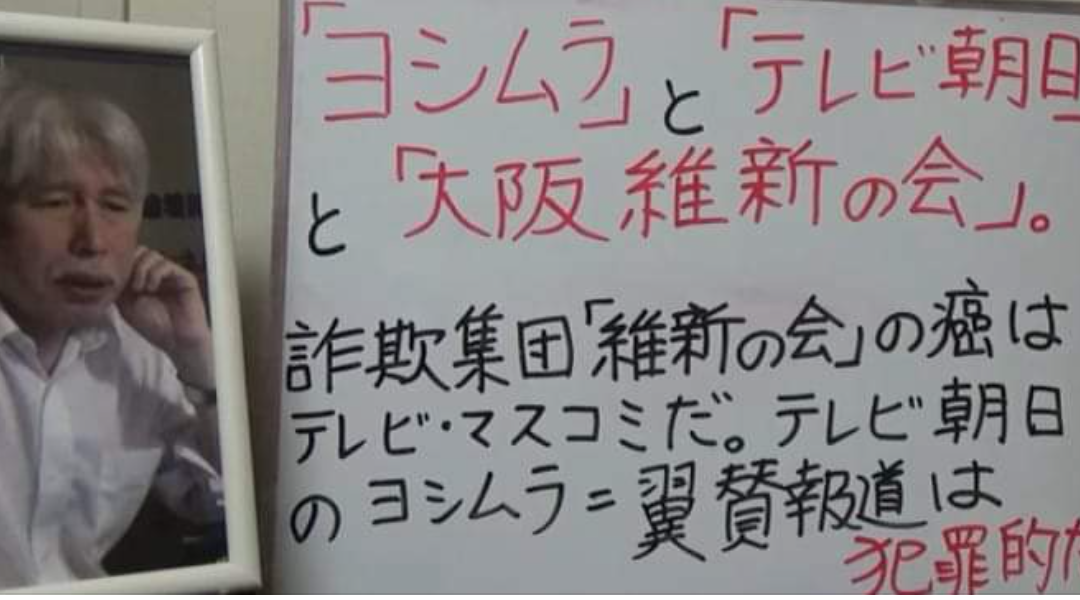 「ヨシムラ」と「テレビ朝日
と「大阪維新の会」。
詐欺集団「維新の会」の癌は
テレビ・マスコミだ。テレビ朝日
のヨシムラ=翼賛報道は
犯罪的だ